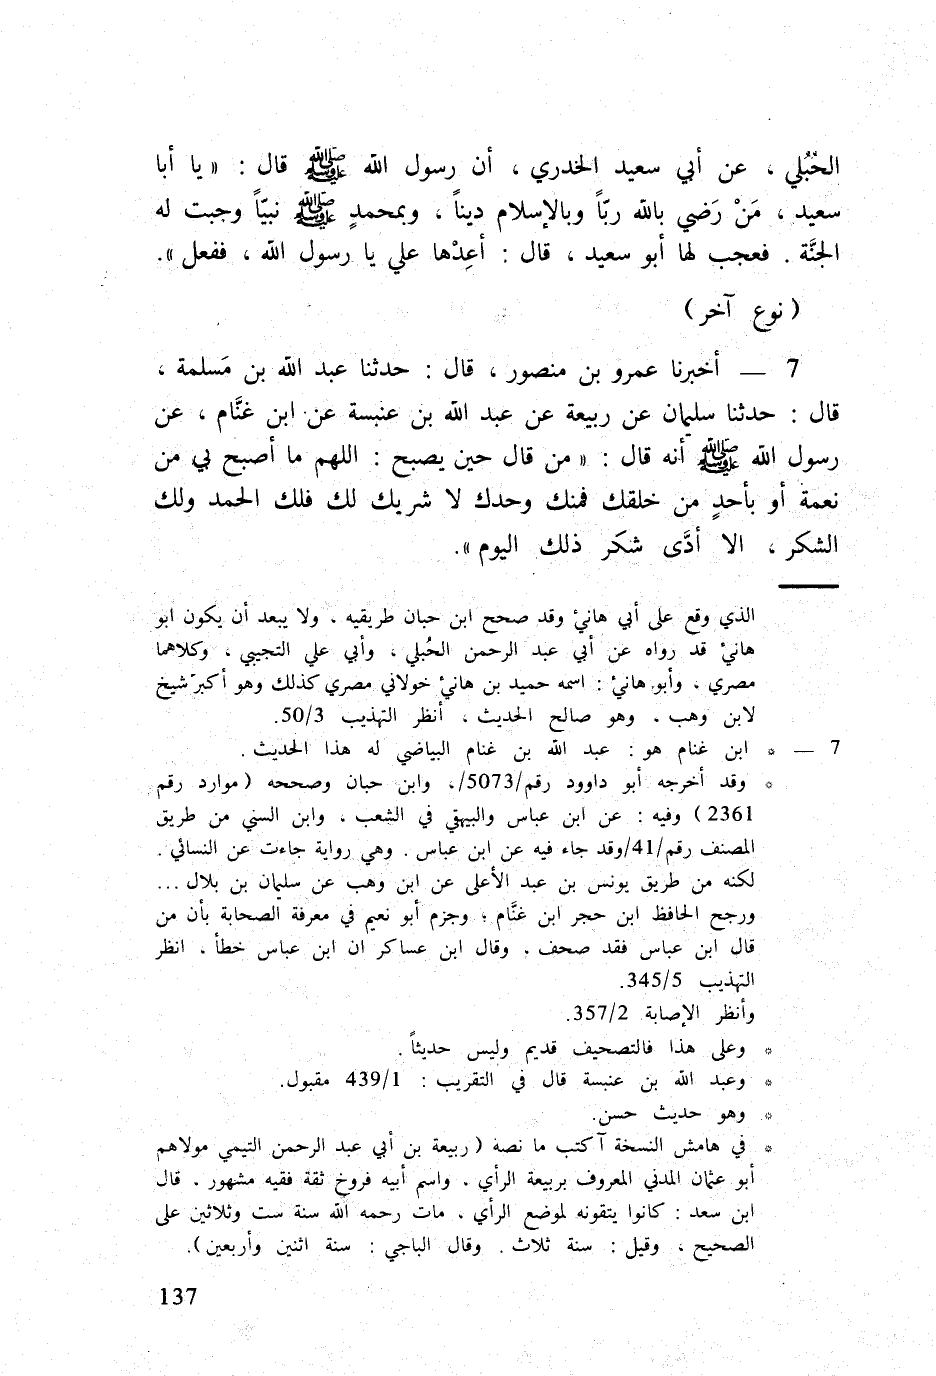 الحُبُلي ، عن أبي سعيد الخدري ، أن رسول الله ﷺ قال : « يا أبا
سعيد ، مَنْ رَضي بالله ربّاً وبالإسلام ديناً ، وبمحمدٍ ﷺ نبيّاً وجبت له
الجنَّة . فعجب لها أبو سعيد ، قال : أعِدْها علي يا رسول الله ، ففعل ».
( نوع آخر )
7 — أخبرنا عمرو بن منصور ، قال : حدثنا عبد الله بن مَسلمة ،
قال : حدثنا سليمان عن ربيعة عن عبد الله بن عنبسة عن ابن غنَّام ، عن
رسول الله ﷺ أنه قال : « من قال حين يصبح : اللهم ما أصبح بي من
نعمة أو بأحدٍ من خلقك فمنك وحدك لا شريك لك فلك الحمد ولك
الشكر ، الا أدَّى شكر ذلك اليوم ».
الذي وقع على أبي هانئ وقد صحح ابن حبان طريقيه . ولا يبعد أن يكون ابو
هانئ قد رواه عن أبي عبد الرحمن الحُبلي ، وأبي علي التجيبي ، وكلاهما
مصري . وأبو هانئ : اسمه حميد بن هانئ خولاني مصري كذلك وهو أكبر شيخ
لابن وهب . وهو صالح الحديث ، أنظر التهذيب 50/3.
7 — * ابن غنام هو : عبد الله بن غنام البياضي له هذا الحديث .
* وقد أخرجه أبو داوود رقم/5073/، وابن حبان وصححه ( موارد رقم
2361 ) وفيه : عن ابن عباس والبيهقي في الشعب ، وابن السني من طريق
المصنف رقم/41/وقد جاء فيه عن ابن عباس . وهي رواية جاءت عن النسائي .
لكنه من طريق يونس بن عبد الأعلى عن ابن وهب عن سليمان بن بلال ...
ورجح الحافظ ابن حجر ابن غنَّام ؛ وجزم أبو نعيم في معرفة الصحابة بأن من
قال ابن عباس فقد صحف . وقال ابن عساكر ان ابن عباس خطأ . انظر
التهذيب 345/5.
وأنظر الإصابة 357/2.
* وعلى هذا فالتصحيف قديم وليس حديثاً .
* وعبد الله بن عنبسة قال في التقريب : 439/1 مقبول.
* وهو حديث حسن.
* في هامش النسخة آ كتب ما نصه ( ربيعة بن أبي عبد الرحمن التيمي مولاهم
أبو عثمان المدني المعروف بربيعة الرأي . واسم أبيه فروخ ثقة فقيه مشهور . قال
ابن سعد : كانوا يتقونه لموضع الرأي . مات رحمه الله سنة ست وثلاثين على
الصحيح ، وقيل : سنة ثلاث . وقال الباجي : سنة اثنين وأربعين ).
137